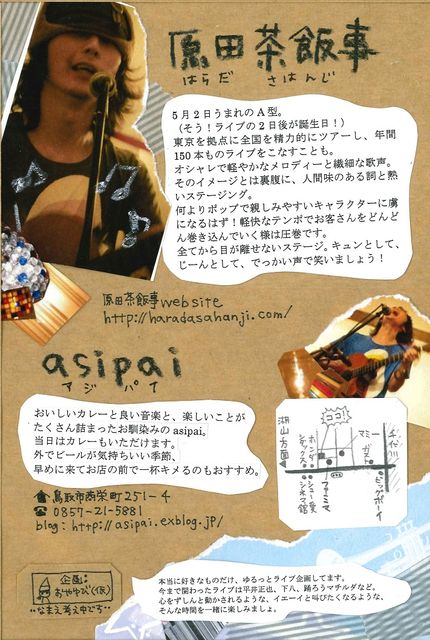 原田茶飯事
はらだ さはんじ
5月2日うまれのA型。
(そう!ライブの2日後が誕生日!)
東京を拠点に全国を精力的にツアーし、年間
150本ものライブをこなすことも。
オシャレで軽やかなメロディーと繊細な歌声。
そのイメージとは裏腹に、人間味のある詞と熱
いステージング。
何よりポップで親しみやすいキャラクターに虜
になるはず!軽快なテンポでお客さんをどんど
ん巻き込んでいく様は圧巻です。
全てから目が離せないステージ。キュンとして、
じーんとして、でっかい声で笑いましょう!
原田茶飯事website
http://haradasahanji.com/
asipai
アジパイ
おいしいカレーと良い音楽と、楽しいことが
たくさん詰まったお馴染みのasipai。
当日はカレーもいただけます。
外でビールが気持ちいい季節、
早めに来てお店の前で一杯キメるのもおすすめ。
ココ!
湖山方面
マミー
ガスト
ホンダ
ファミマ
ビッグボーイ
鳥取市商栄町251-4
0857-21-5881
blog: http://asipai.exblog.jp/
企画:
おやゆび(仮)
なまえ考え中です
本当に好きなものだけ、ゆるっとライブ企画してます。
今まで関わったライブは平井正也、下八、踊ろうマチルダなど。
心をずしんと動かされるような、イエーイと叫びたくなるような、
そんな時間を一緒に楽しみましょ。